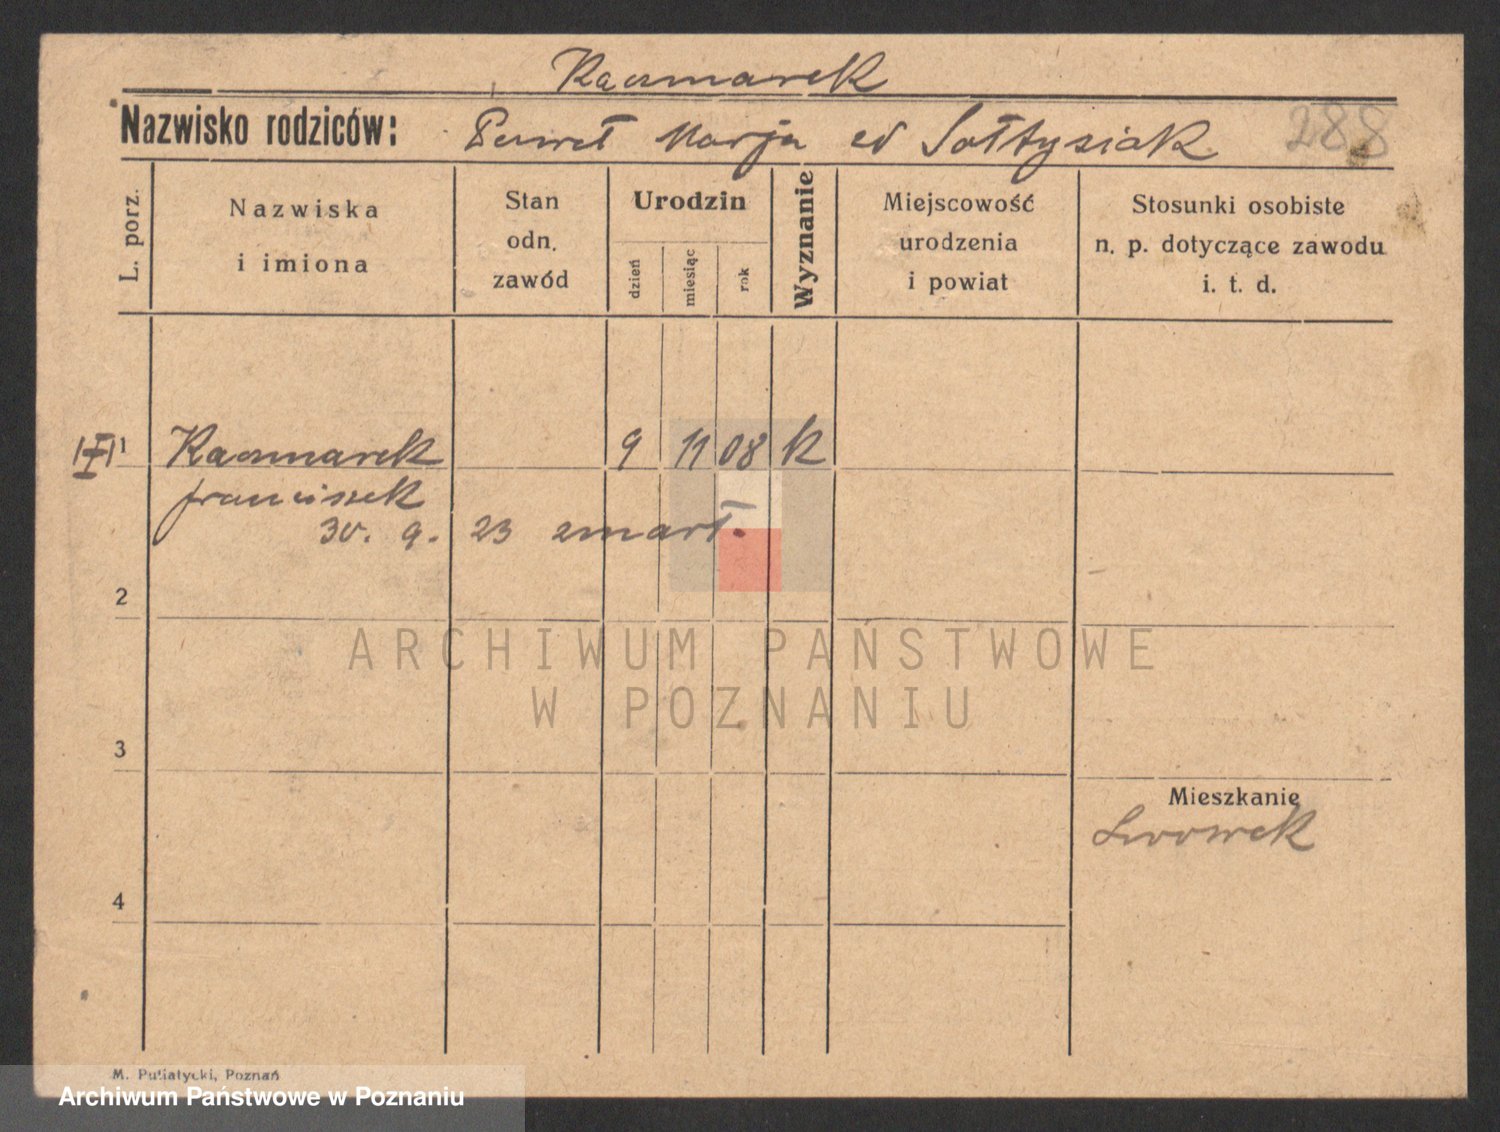 Kaczmarek
Nazwisko rodziców: Paweł Marja ed Sołtysiak 288
L. porz.
Nazwiska
i imiona
Stan
odn.
zawód
Urodzin
dzień
miesiąc
rok
Wyznanie
Miejscowość
urodzenia
i powiat
Stosunki osobiste
n. p. dotyczące zawodu
i. t. d.
1 Kaczmarek 9 11 08 k
Franciszek
30. 9. 23 zmarł.
2
ARCHIWUM PAŃSTWOWE
W POZNANIU
3
Mieszkanie
Lwowek
4
M. Putiatycki, Poznań
Archiwum Państwowe w Poznaniu